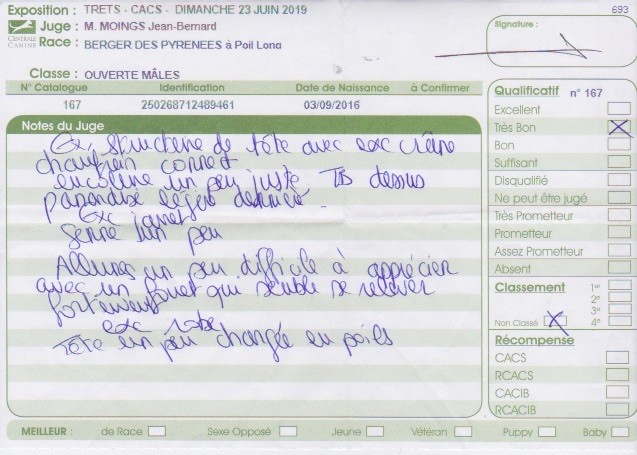 Exposition : TRETS - CACS - DIMANCHE 23 JUIN 2019
693
Juge : M. MOINGS Jean-Bernard
Signature :
CENTRALE CANINE
Race : BERGER DES PYRENEES à Poil Long
Classe : OUVERTE MÂLES
N° Catalogue Identification Date de Naissance à Confirmer
167 250268712489461 03/09/2016
Notes du Juge
Ex. structure de tête avec exc crâne
chanfrein correct
encolure un peu juste TB dessus
légère
Exc
serré un peu
Allures un peu difficile à apprécier
avec un fouet qui semble se relever
fortement
exc robe
Tête un peu chargée en poils
Qualificatif n° 167
Excellent
Très Bon
Bon
Suffisant
Disqualifié
Ne peut être jugé
Très Prometteur
Prometteur
Assez Prometteur
Absent
Classement 1er
2e
3e
Non Classé 4e
Récompense
CACS
RCACS
CACIB
RCACIB
MEILLEUR : de Race Sexe Opposé Jeune Vétéran Puppy Baby